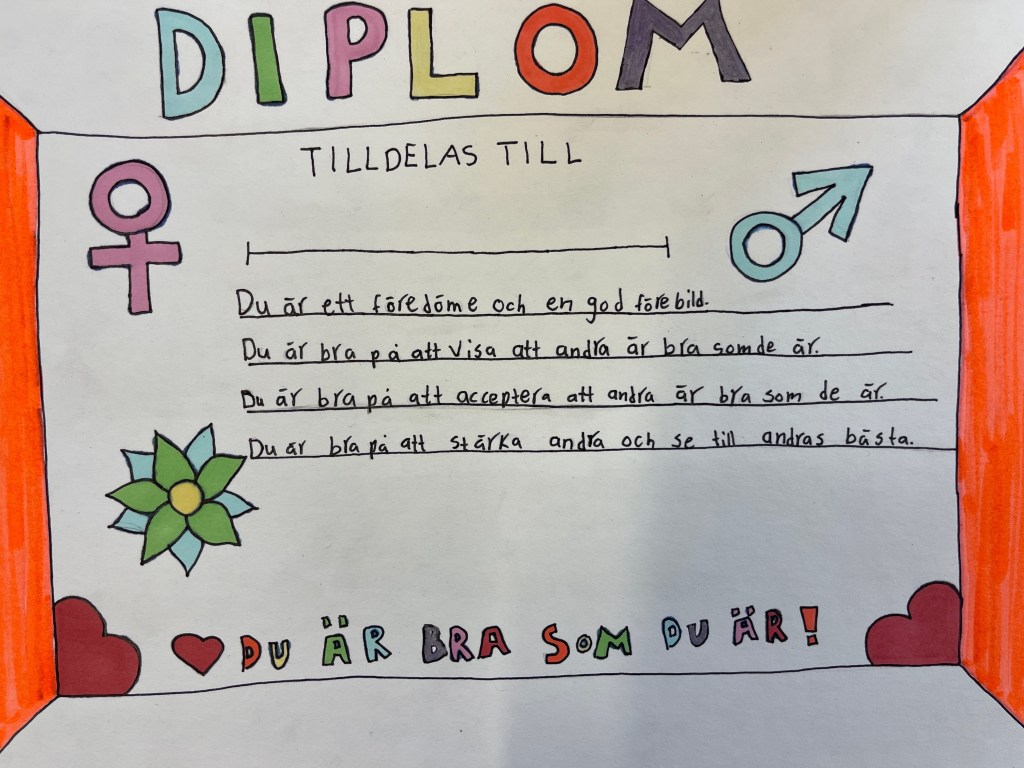 DIPLOM
TILLDELAS TILL
Du är ettföredöme och en god förebild.
Du är bra på att visa att andra är bra somde är.
Du är bra på att acceptera att andra är bra som de är.
Du är bra på att stärka andra och se till andras bästa.
DU ÄR BRA SOM DU ÄR!